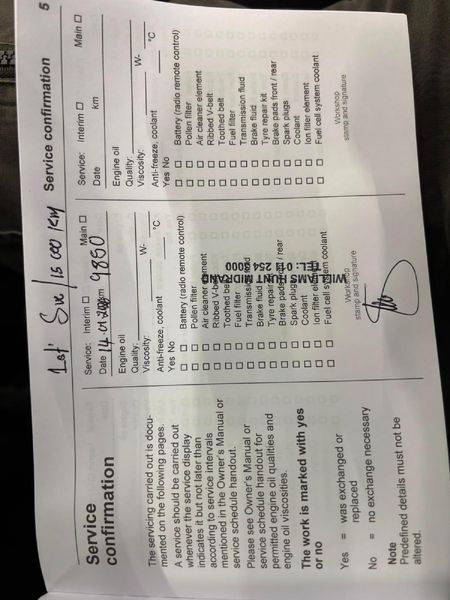 Service
confirmation
The servicing carried out is docu-
mented on the following pages.
A service should be carried out
whenever the service display
indicates it but not later than
according to service intervals
mentioned in the Owner's Manual or
service schedule handout.
Please see Owner's Manual or
service schedule handout for
permitted engine oil qualities and
engine oil viscosities.
The work is marked with yes
or no
Yes = was exchanged or
replaced
No = no exchange necessary
Note
Predefined details must not be
altered.
1st Svc/15 000 km
Service: Interim ☐ Main ☐
Date km 9850
Engine oil
Quality:
Viscosity: W-
Anti-freeze, coolant °C
Yes No
☐ ☐ Battery (radio remote control)
☐ ☐ Pollen filter
☐ ☐ Air cleaner element
☐ ☐ Ribbed V-belt
☐ ☐ Toothed belt
☐ ☐ Fuel filter
☐ ☐ Transmission fluid
☐ ☐ Brake fluid
☐ ☐ Tyre repair kit
☐ ☐ Brake pads front / rear
☐ ☐ Spark plugs
☐ ☐ Coolant
☐ ☐ Ion filter element
☐ ☐ Fuel cell system coolant
WILLIAMS HUNT MIDRAND
TEL: 011 254 0000
Workshop
stamp and signature
Service confirmation 5
Service: Interim ☐ Main ☐
Date km
Engine oil
Quality:
Viscosity: W-
Anti-freeze, coolant °C
Yes No
☐ ☐ Battery (radio remote control)
☐ ☐ Pollen filter
☐ ☐ Air cleaner element
☐ ☐ Ribbed V-belt
☐ ☐ Toothed belt
☐ ☐ Fuel filter
☐ ☐ Transmission fluid
☐ ☐ Brake fluid
☐ ☐ Tyre repair kit
☐ ☐ Brake pads front / rear
☐ ☐ Spark plugs
☐ ☐ Coolant
☐ ☐ Ion filter element
☐ ☐ Fuel cell system coolant
Workshop
stamp and signature